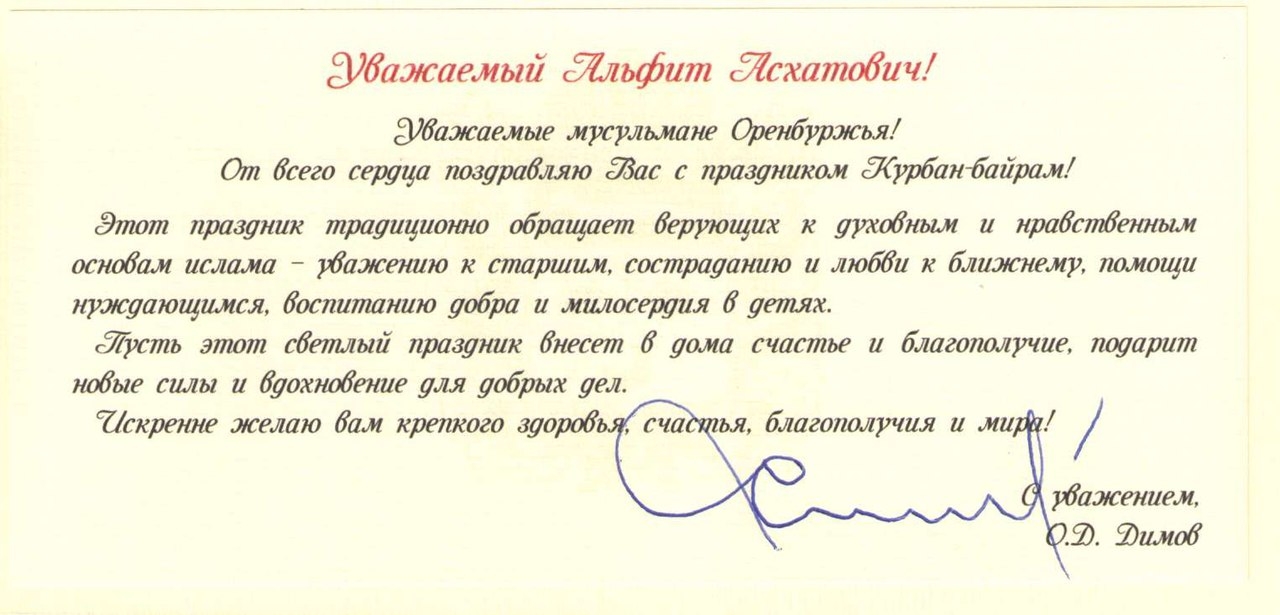 Уважаемый Альфит Асхатович!
Уважаемые мусульмане Оренбуржья!
От всего сердца поздравляю Вас с праздником Курбан-байрам!
Этот праздник традиционно обращает верующих к духовным и нравственным
основам ислама – уважению к старшим, состраданию и любви к ближнему, помощи
нуждающимся, воспитанию добра и милосердия в детях.
Пусть этот светлый праздник внесет в дома счастье и благополучие, подарит
новые силы и вдохновение для добрых дел.
Искренне желаю вам крепкого здоровья, счастья, благополучия и мира!
С уважением,
О.Д. Димов